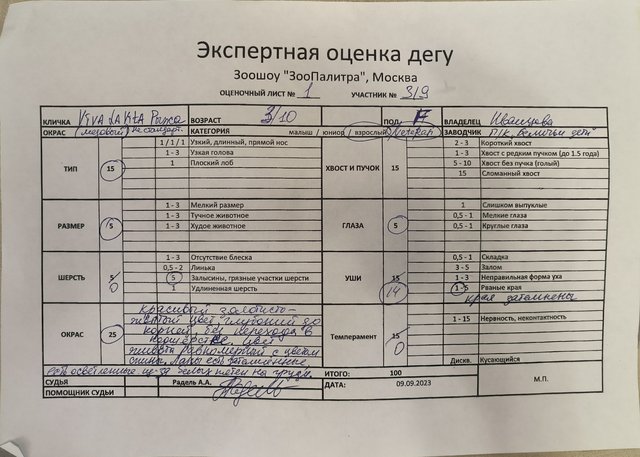 Экспертная оценка дегу
Зоошоу "ЗооПалитра", Москва
ОЦЕНОЧНЫЙ ЛИСТ № 1 УЧАСТНИК № 3/9
КЛИЧКА VIVA LAKIA Рыжа ВОЗРАСТ 3/10 ПОЛ F ВЛАДЕЛЕЦ Иванцова
ОКРАС (медовый) не стандарт. КАТЕГОРИЯ малыш / юниор / взрослый / ветеран ЗАВОДЧИК П/к "Беличьи дети"
ТИП 15
1 / 1 / 1 Узкий, длинный, прямой нос
1 - 3 Узкая голова
1 Плоский лоб
ХВОСТ И ПУЧОК 15
2 - 3 Короткий хвост
1 - 3 Хвост с редким пучком (до 1.5 года)
5 - 10 Хвост без пучка (голый)
15 Сломанный хвост
РАЗМЕР 5
1 - 3 Мелкий размер
1 - 3 Тучное животное
1 - 3 Худое животное
ГЛАЗА 5
1 Слишком выпуклые
0,5 - 1 Мелкие глаза
0,5 - 1 Круглые глаза
ШЕРСТЬ 5 0
1 - 3 Отсутствие блеска
0,5 - 2 Линька
5 Залысины, грязные участки шерсти
1 Удлиненная шерсть
УШИ 15 14
0,5 - 1 Складка
3 - 5 Залом
1 - 3 Неправильная форма уха
1 - 5 Рваные края
края затемнены
ОКРАС 25
красивый золотисто-
желтый цвет глубокий до
корней, без перехода в
подшерстке. Цвет
живота равномерный с цветом
спины. Лапы
есть осветленные из-за белых пятен на груди.
Темперамент 15 0
1 - 15 Нервность, неконтактность
Дискв. Кусающийся
ИТОГО: 100
СУДЬЯ Радель А.А. ДАТА: 09.09.2023 М.П.
ПОМОЩНИК СУДЬИ